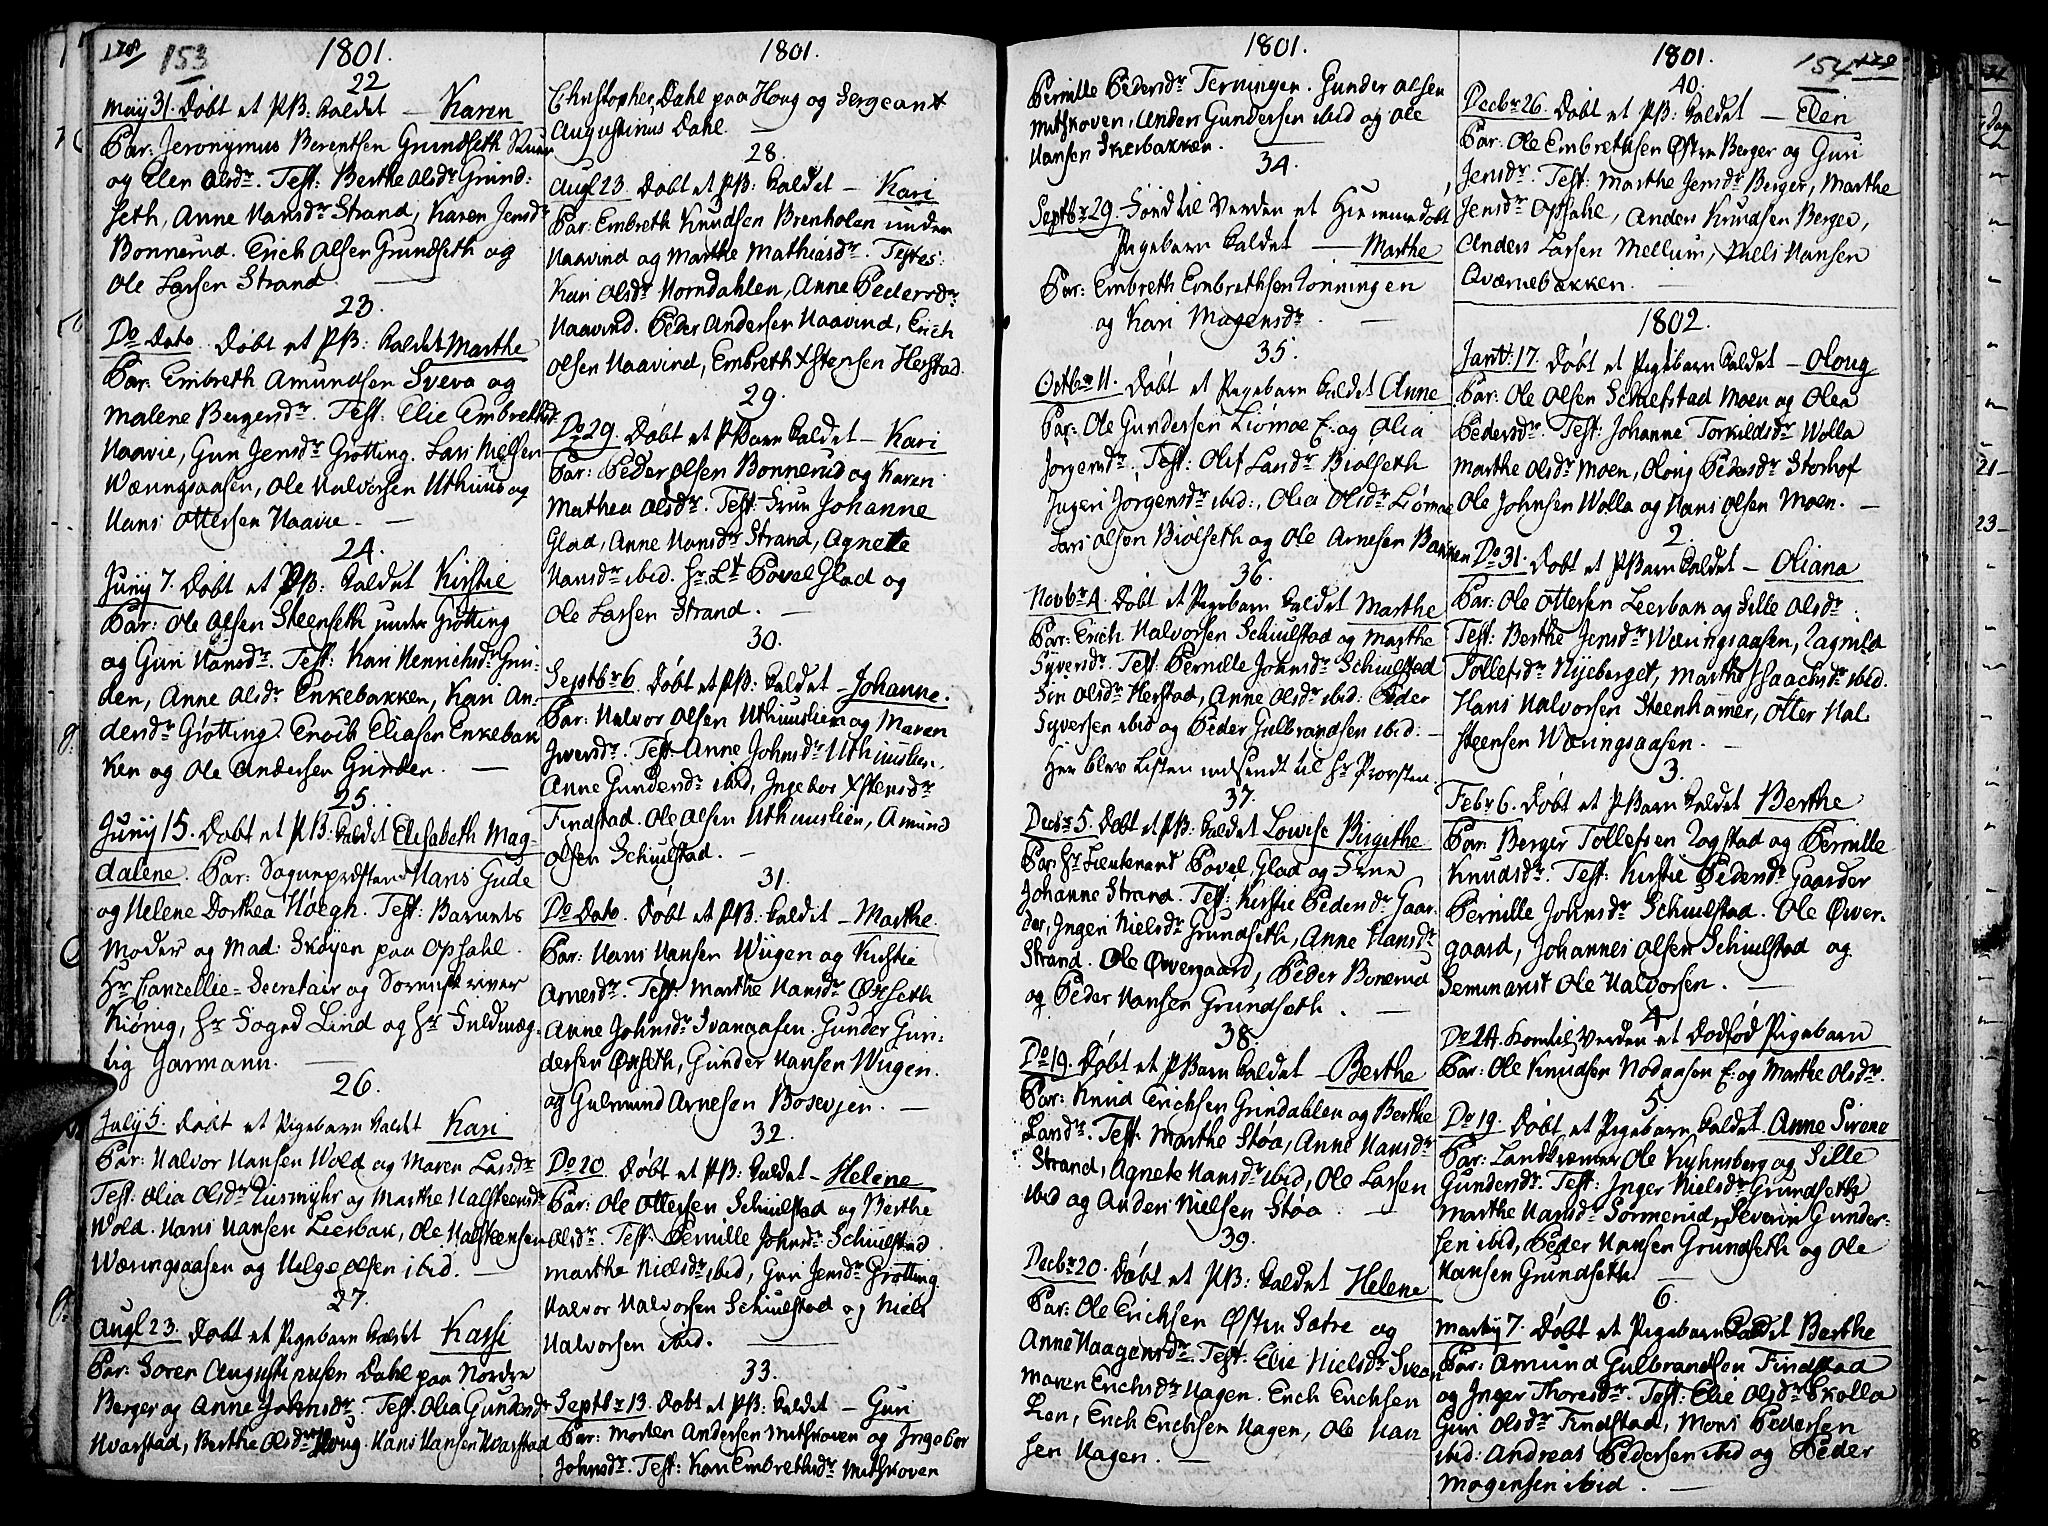 178 153
1801.
22
Maÿ 31. Døbt et PB: kaldet — Karen
Par: Jeronÿmus Berentsen Grundseth
og Elen Olsdr. Test: Berthe Olsdr Grund-
seth, Anne Hansdr Strand, Karen Jensdr
Bonnerud. Erich Olsen Grundseth og
Ole Larsen Strand. —
23.
Do Dato. Døbt et PB: kaldet Marthe
Par: Embreth Amundsen Sveva og
Malene Bergersdr. Test: Elie Embrethsdr
Naavie, Guri Jensdr Grøtting. Lars Nielsen
Wæringsaasen, Ole Halvorsen Uthuus og
Hans Ottersen Naavie. —
24.
Junÿ 7. Døbt et PB: kaldet Kirstie
Par: Ole Olsen Steenseth under Grøtting
og Guri Hansdr. Test: Kari Henrichsdr Grin-
den, Anne Olsdr Enkebakken, Kari An-
dersdr Grøtting. Enoch Eliasen Enkebak
ken og Ole Andersen Grinden. —
25.
Junÿ 15. Døbt et PB: kaldet Elisabeth Mag-
dalene. Par: Sognepræsten Hans Gude
og Helene Dorthea Høegh. Test: Barnets
Moder og Mad: Skøÿen paa Opsahl.
Hr Cancellie-Secretair og Sorenskriver
Kiønig, Hr Foged Lind og Hr Fuldmæg-
tig Garmann. —
26.
Julÿ 5. Døbt et Pigebarn kaldet Kari
Par: Halvor Hansen Wold og Maren Larsdr
Test: Olia Olsdr Kiesmÿhr og Marthe Halsteensdr
Wold. Hans Hansen Leerbak, Ole Halsteensen
Wæringsaasen og Helge Olsen ibid. —
27.
Augl 23. Døbt et Pigebarn kaldet Karsi
Par: Søren Augustinusen Dahl paa Nordre
Berger og Anne Johnsdr. Test. Olia Gundersdr
Hvarstad, Berthe Olsdr Houg. Hans Hansen Hvarstad
1801.
Christopher Dahl paa Houg og Sergeant
Augustinus Dahl. —
28.
Augl 23. Døbt et PB: kaldet — Kari
Par: Embreth Knudsen Brenholen under
Naavind og Marthe Mathiasdr. Testes:
Kari Olsdr Horndahlen, Anne Pedersdr
Naavind. Peder Andersen Naavind, Erich
Olsen Naavind, Embreth Østensen Herstad.
29.
Do 29. Døbt et PBarn kaldet — Kari
Par: Peder Olsen Bonnerud og Karen
Mathea Olsdr. Test: Frue Johanne
Glad, Anne Hansdr Strand, Agnete
Hansdr ibid. Hr Lt Povel Glad og
Ole Larsen Strand. —
30.
Septbr 6. Døbt et PB: kaldet — Johanne.
Par: Halvor Olsen Uthuuslien og Maren
Iversdr. Test. Anne Johnsdr Uthuuslien,
Anne Gundersdr ibid, Ingebor Østensdr
Findstad. Ole Olsen Uthuuslien, Amund
Olsen Schiulstad. —
31.
Do Dato. Døbt et PB: kaldet — Marthe.
Par: Hans Hansen Wugen og Kirstie
Arnesdr. Test: Marthe Hansdr Øxseth
Anne Johnsdr Svanaasen. Gunder Gun-
dersen Øxseth, Gunder Hansen Wugen.
og Gulmund Arnesen Bosevjen. —
32.
Do 20. Døbt et PB: kaldet — Helene
Par: Ole Ottersen Schiulstad og Berthe
Olsdr. Test: Pernille Johnsdr Schiulstad
Marthe Nielsdr ibid, Guri Jensdr Grøtting.
Halvor Halvorsen Schiulstad og Niels
Halvorsen ibid. —
33.
Septbr 13. Døbt et PB: kaldet — Guri
Par: Morten Andersen Mitskoven og Ingebor
Johnsdr. Test: Kari Embrethsdr Mitskoven
1801.
Pernille Pedersdr Terningen. Gunder Olsen
Mitskoven, Anders Gundersen ibid og Ole
Hansen Skerbakken. —
34.
Septbr 29. Fød til Verden et Hiemmedøbt
Pigebarn kaldet — Marthe
Par: Embreth Embrethsen Lonningen
og Kari Mogensdr. —
35.
Octbr 11. Døbt et Pigebarn kaldet Anne
Par: Ole Gundersen Liømoe E: og Olia
Jørgensdr. Test: Olif Larsdr Biølseth
Ingeri Jørgensdr ibid:, Olia Olsdr Liømoe
Lars Olsen Biølseth og Ole Arnesen Bakken
36.
Novbr 4. Døbt et Pigebarn kaldet Marthe
Par: Erich Halvorsen Schiulstad og Marthe
Sÿversdr. Test: Pernille Johnsdr Schiulstad
Siri Olsdr Herstad, Anne Olsdr ibid. Peder
Sÿversen ibid og Peder Gulbrandsen ibid. —
Her blev Listen indsendt til Hr Provsten.
37.
Decbr 5. Døbt et PB: kaldet Lowise Birgithe
Par: Hr Lieutenant Povel Glad og Frue
Johanne Strand. Test: Kirstie Pedersdr Gaar-
der, Inger Nielsdr Grundseth, Anne Hansdr
Strand. Ole Øvergaard, Peder Bonerud
og Peder Hansen Grundseth. —
38.
Do 19. Døbt et PBarn kaldet — Berthe
Par: Knud Erichsen Grindahlen og Berthe
Larsdr. Test. Marthe Støa, Anne Hansdr
Strand, Agnete Hansdr ibid, Ole Larsen
ibid og Anders Nielsen Støa. —
39.
Decbr 20. Døbt et PB: kaldet Helene
Par: Ole Erichsen Østen Sætre og
Anne Haagensdr. Test: Elie Nielsdr Sveen
Maren Erichsdr Hagen. Erich Erichsen
Lien, Erich Erichsen Hagen, Ole Han
sen Hagen. —
1801. 154 179
40.
Decbr 26. Døbt et PB: kaldet — Eleri
Par: Ole Embrethsen Østre Berger og Guri
Jensdr. Test: Marthe Jensdr Berger, Marthe
Jensdr Opsahl, Anders Knudsen Berger,
Anders Larsen Mellum, Niels Hansen
Qværnebakken. —
1802.
Janv: 17. Døbt et Pigebarn kaldet — Oloug
Par: Ole Olsen Schiefstad Moen og Olea
Pedersdr. Test: Johanne Torkildsdr Wolla
Marthe Olsdr Moen, Oloug Pedersdr Storhof
Ole Johnsen Wolla og Hans Olsen Moen. —
2.
Do 31. Døbt et PBarn kaldet — Oliana
Par: Ole Ottersen Leerbak og Sille Olsdr.
Test: Berthe Jensdr Wæringsaasen, Ragnild
Tollefsdr Nÿeberget, Marthe Isaachsdr ibid.
Hans Halvorsen Steenhamer, Otter Hal
steensen Wæringsaasen. —
3.
Febr 6. Døbt et PBarn kaldet Berthe
Par: Berger Tollefsen Rogstad og Pernille
Knudsdr. Test: Kirstie Pedersdr Gaarder
Pernille Johnsdr Schiulstad. Ole Øver-
gaard, Johannes Olsen Schiulstad og
Seminarist Ole Halvorsen. —
4
Do 14. Kom til Verden et Dødfød Pigebarn
Par: Ole Knudsen Nodaasen E: og Marthe Olsdr.
5
Do 19. Døbt et Pigebarn kaldet Anne Sirene
Par: Landkræmmer Ole Kÿhnsberg og Sille
Gundersdr. Test: Inger Nielsdr Grundseth
Marthe Hansdr Sørmerud, Severin Gunder-
sen ibid, Peder Hansen Grundseth og Ole
Hansen Grundseth.
6
Martij 7. Døbt et Pigebarn kaldet Berthe
Par: Amund Gulbrandsen Findstad
og Inger Thoresdr. Test: Elie Olsdr Skolla
Guri Olsdr Findstad, Mons Pedersen
ibid: Andreas Pedersen ibid og Peder
Mogensen ibid. —